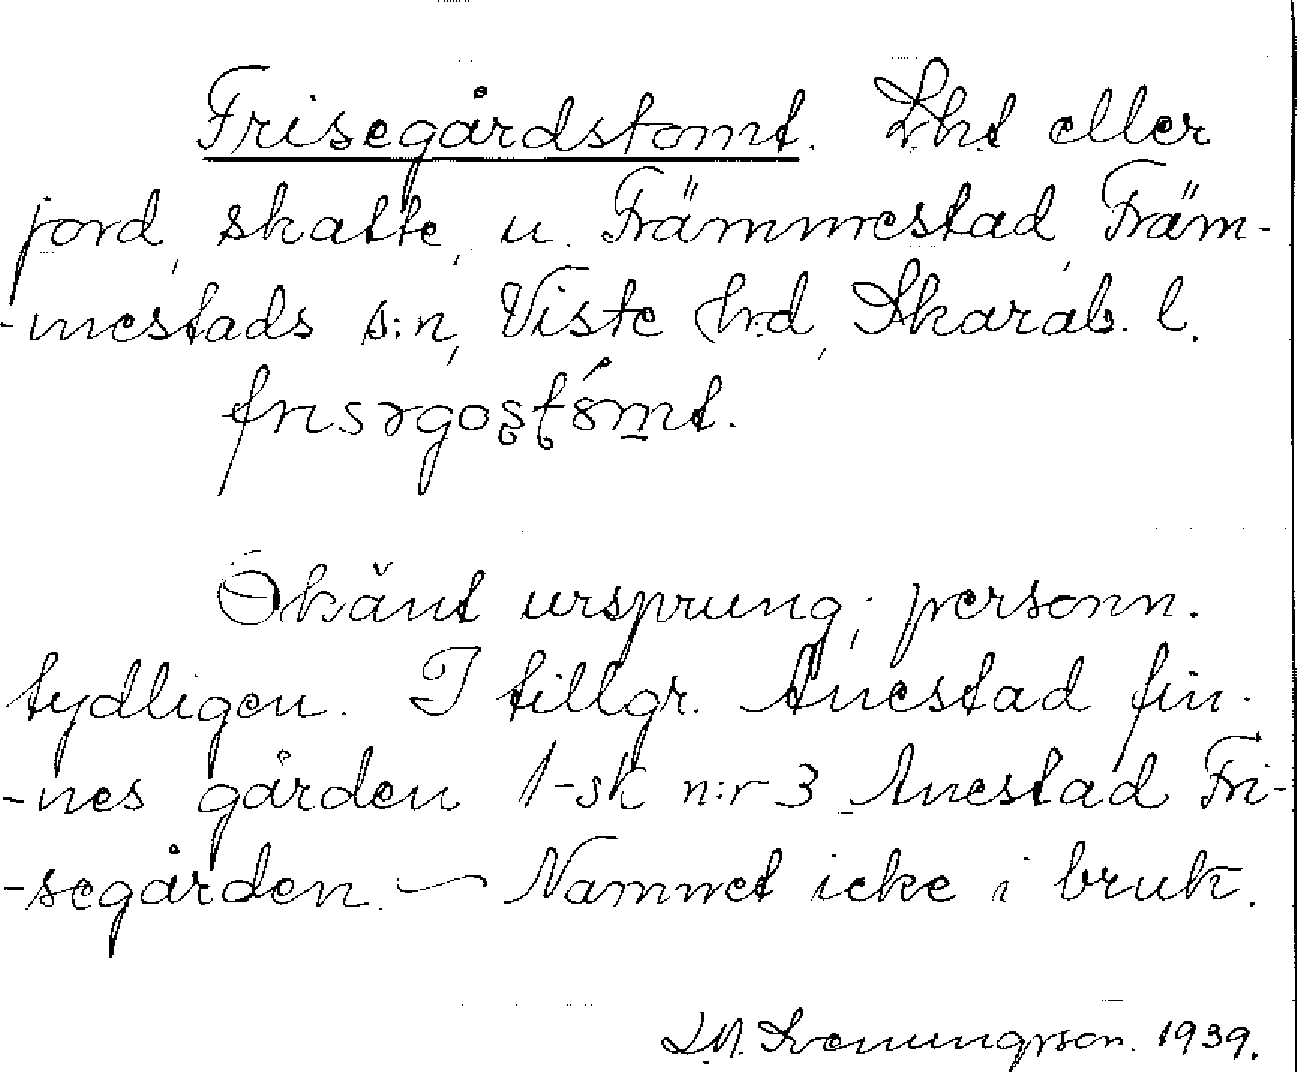 Frisegårdstomt. Lht eller
jord, skatte, u. Främmestad, Främ-
-mestads s:n, Viste hrd, Skarab. l.
Okänt ursprung; personn.
tydligen. I tillgr. Anestad fin-
-nes gården 1-sk n:r 3 Anestad Fri-
-segården. — Namnet icke i bruk.
1939.